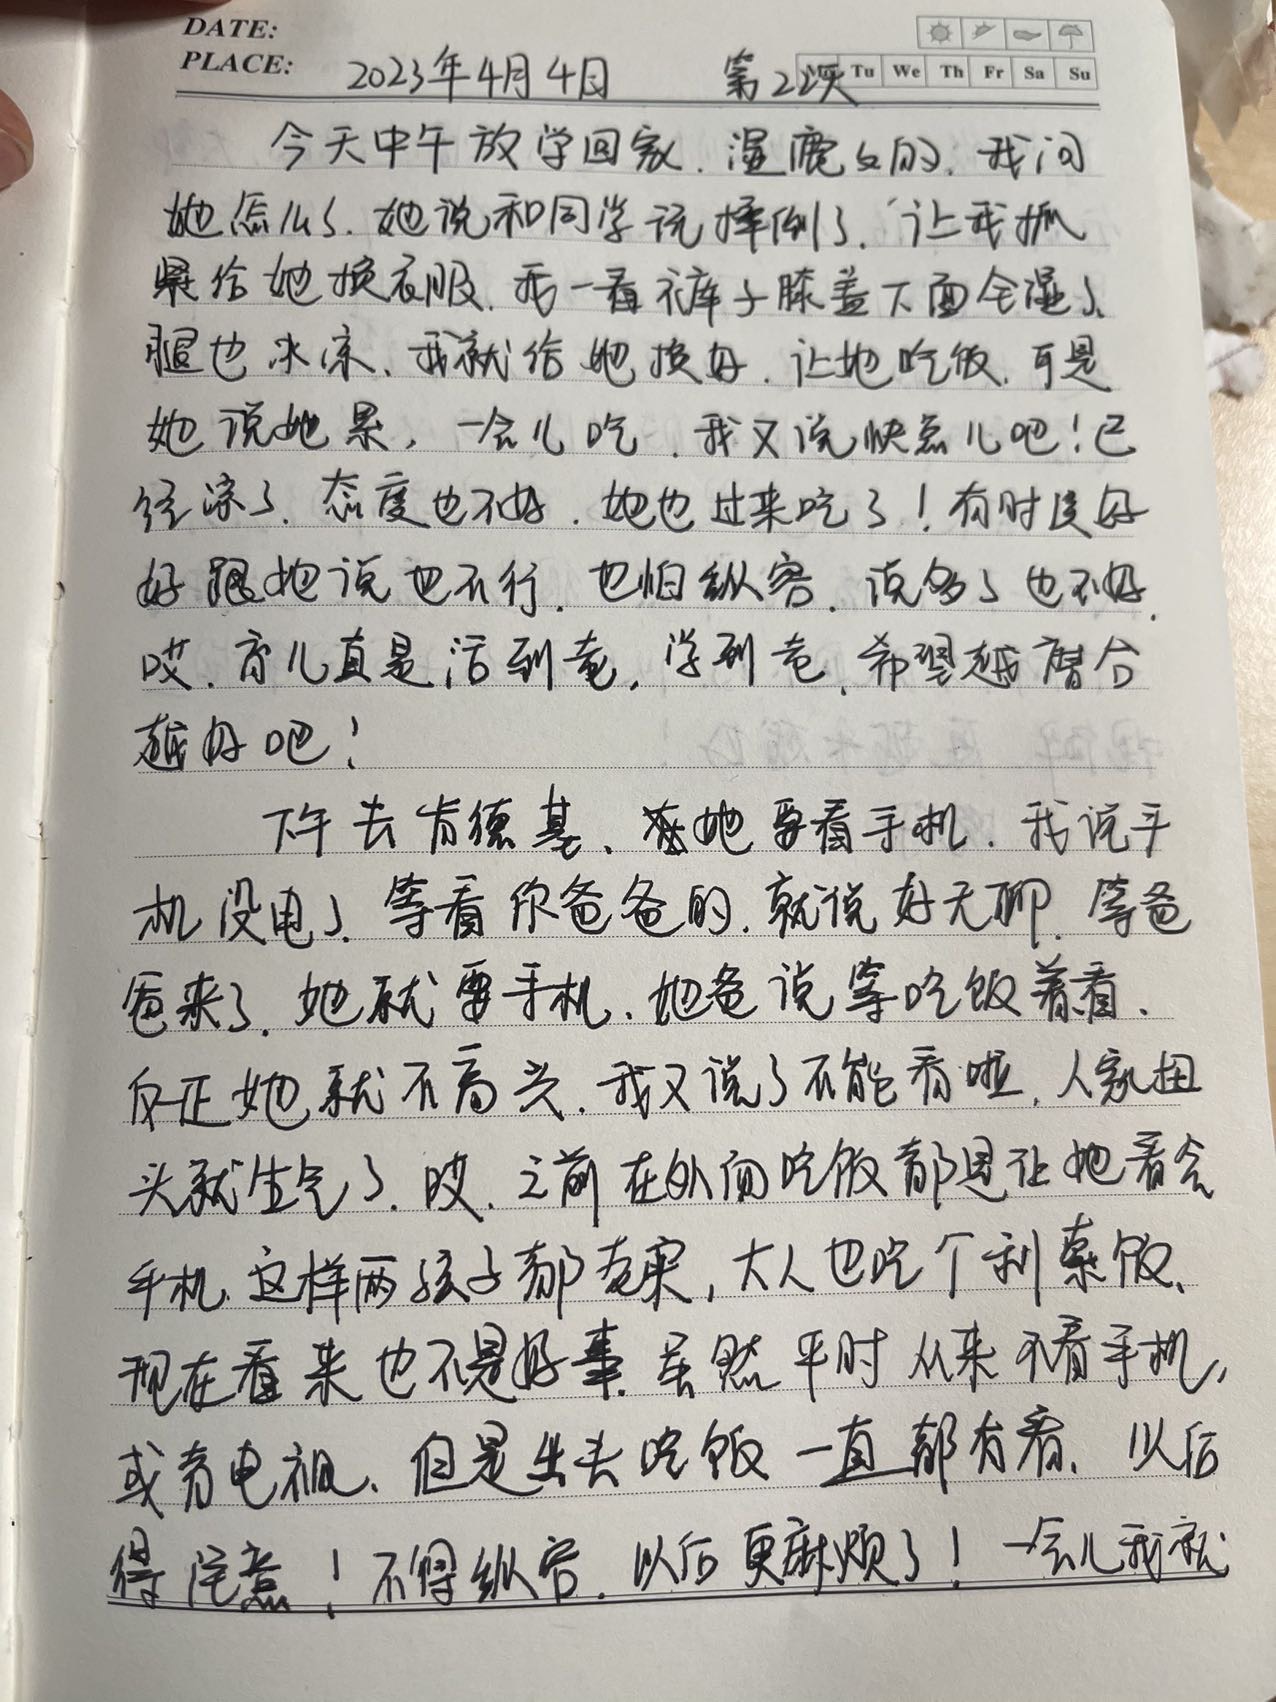 DATE:
PLACE: 2023年4月4日 第22天
Tu We Th Fr Sa Su
今天中午放学回家，湿鹿鹿的，我问
她怎么了，她说和同学说摔倒了，让我抓
紧给她换衣服，我一看裤子膝盖下面全湿了，
腿也冰凉，我就给她换好，让她吃饭，可是
她说她累，一会儿吃，我又说快点儿吧！已
经凉了，态度也不好，她也过来吃了！有时候好
好跟她说也不行，也怕纵容，说多了也不好，
哎，育儿真是活到老，学到老，希望越磨合
越好吧！
下午去肯德基，她要看手机，我说手
机没电了，等看你爸爸的，就说好无聊，等爸
爸来了，她就要手机，她爸说等吃饭着看，
反正她就不高兴，我又说了不能看啦，人家扭
头就生气了，哎，之前在外面吃饭都是让她看会
手机，这样两孩子都老实，大人也吃个利索饭，
现在看来也不是好事，虽然平时从来不看手机，
或看电视，但是出去吃饭一直都有看，以后
得注意！不得纵容，以后更麻烦了！一会儿我就